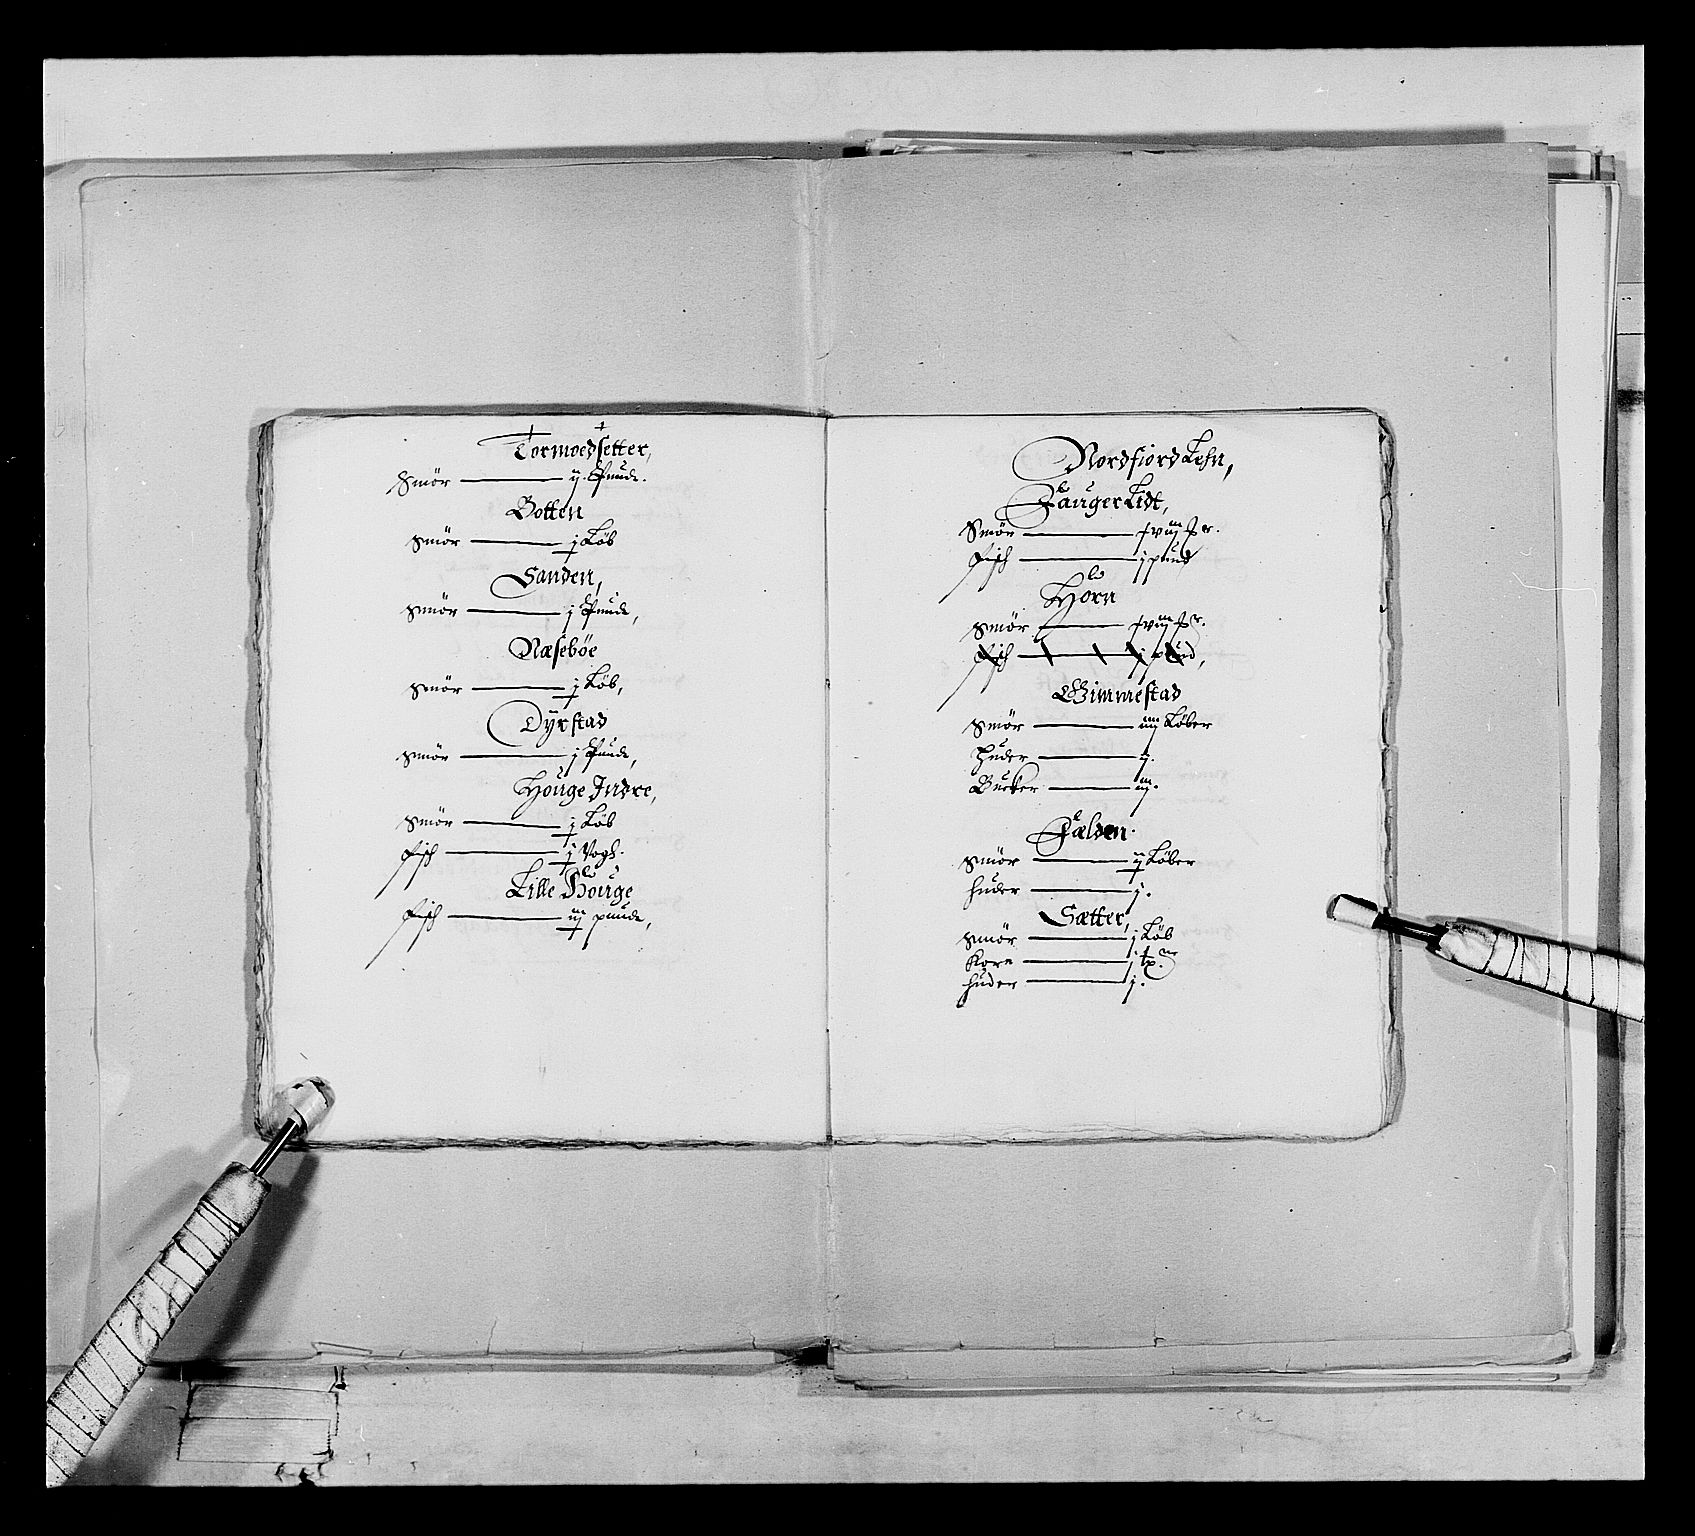 Tormoedsetter,
Smör — ij. Punde.
Botten
Smör — j Löb
Sanden,
Smör — j Punde,
Næsebőe
Smör — j Löb,
Dÿrstad
Smör — j Punde,
Houge Indre,
Smör — j Löb
Fisch — j Vogh.
Lille Houge
Fisch — iij punde,
Nordfiord Lehn,
Faugerlidt,
Smör
Fisch — j pund
Horn
Smör
Fisch — j pund,
Gimmestad
Smör — iiij Löber
Huder — ij.
Bucker — iij.
Fælden.
Smör — ij Löber
Huder — j.
Sætter,
Smör — j Löb
Korn — j
Huder — j.